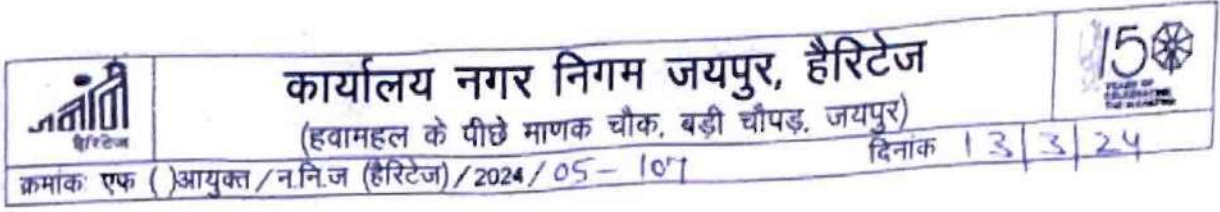 हैरिटेज
कार्यालय नगर निगम जयपुर, हैरिटेज
(हवामहल के पीछे माणक चौक, बड़ी चौपड़, जयपुर)
150
YEARS OF
CELEBRATING
THE MAHATMA
क्रमांक एफ ( )आयुक्त/न.नि.ज (हैरिटेज)/2024/05-107
दिनांक 13/3/24